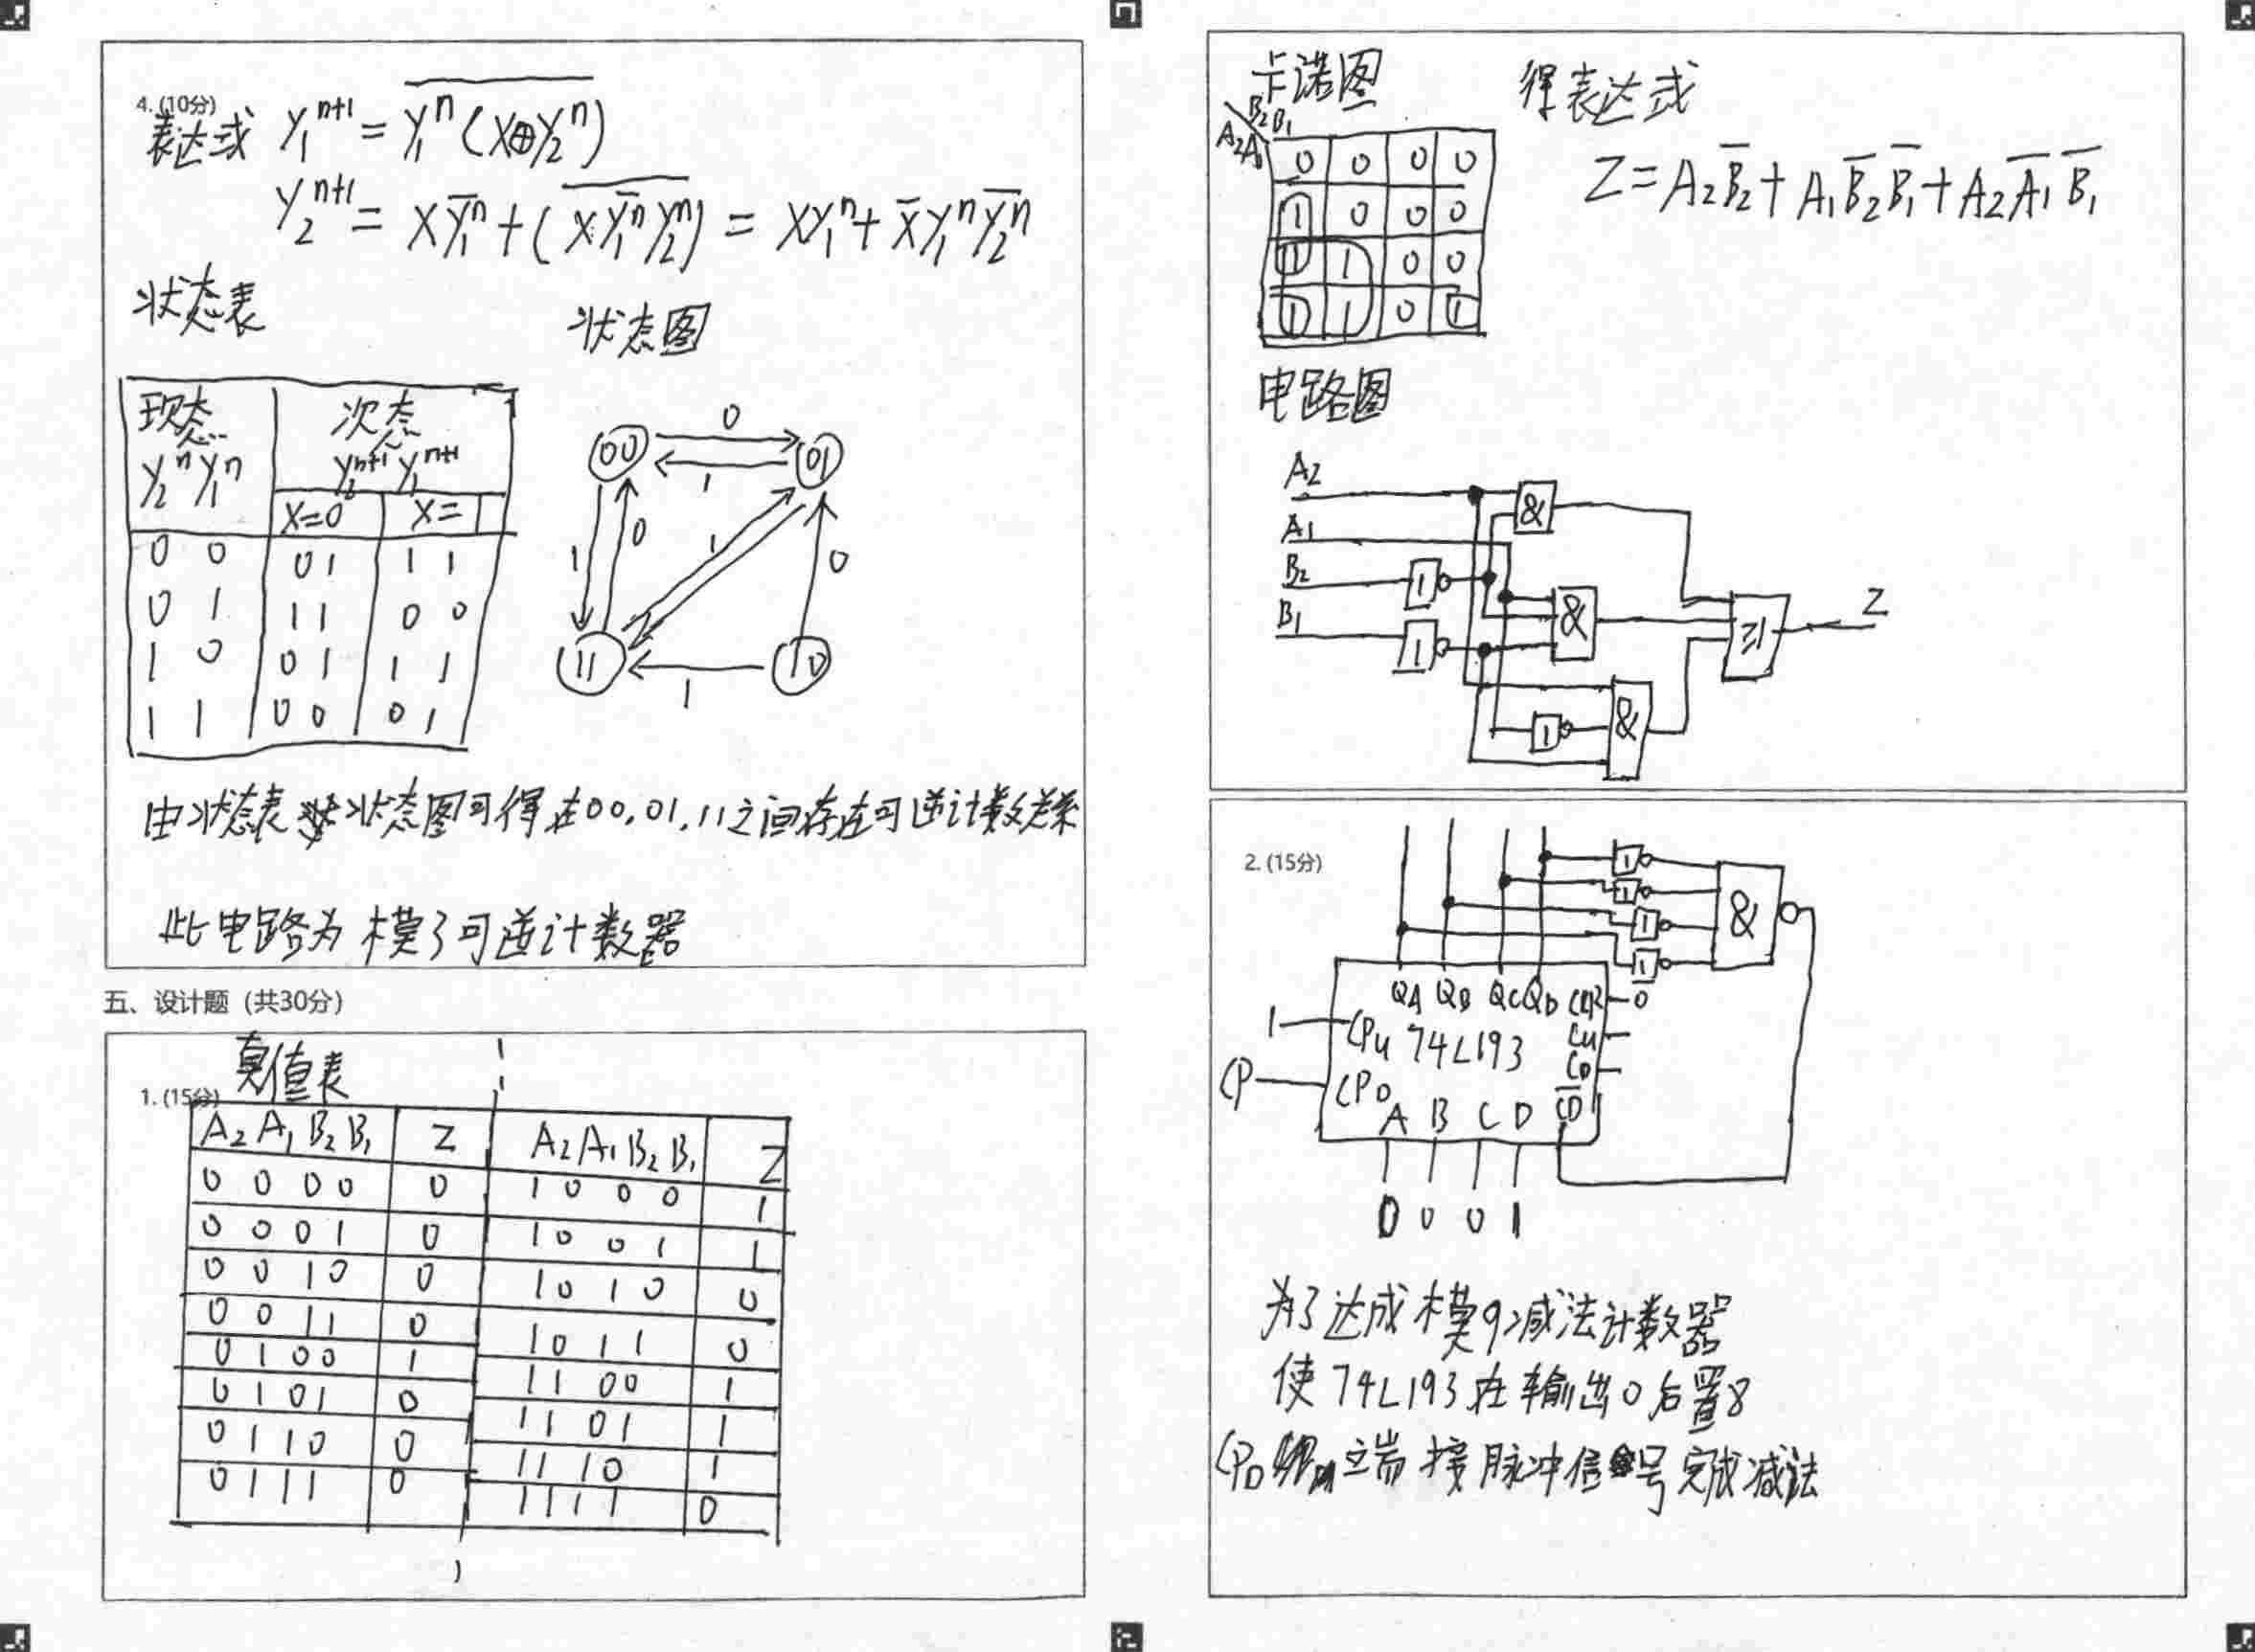 4. (10分)
表达式 y₁ⁿ⁺¹ = \overline{y₁ⁿ(x⊕y₂ⁿ)}
y₂ⁿ⁺¹ = x\overline{y₁ⁿ} + (\overline{x\overline{y₁ⁿ}y₂ⁿ}) = xy₁ⁿ + \overline{x}y₁ⁿ\overline{y₂ⁿ}
状态表
状态图
现态 次态
y₂ⁿ y₁ⁿ y₂ⁿ⁺¹ y₁ⁿ⁺¹
x=0 x=1
0 0 0 1 1 1
0 1 1 1 0 0
1 0 0 1 1 1
1 1 0 0 0 1
00 0 01
1
1 0 1 0
11 10
1
由状态表 状态图可得在00,01,11之间存在可逆计数关系
此电路为模3可逆计数器
五、设计题（共30分）
真值表
1. (15分)
A₂ A₁ B₂ B₁ Z A₂ A₁ B₂ B₁ Z
0 0 0 0 0 1 0 0 0 1
0 0 0 1 0 1 0 0 1 1
0 0 1 0 0 1 0 1 0 0
0 0 1 1 0 1 0 1 1 0
0 1 0 0 1 1 1 0 0 1
0 1 0 1 0 1 1 0 1 1
0 1 1 0 0 1 1 1 0 1
0 1 1 1 0 1 1 1 1 0
卡诺图
得表达式
B₂B₁
A₂A₁
0 0 0 0
1 0 0 0
1 1 0 0
1 1 0 1
Z = A₂\overline{B₂} + A₁\overline{B₂}\overline{B₁} + A₂\overline{A₁}\overline{B₁}
电路图
A₂
&
A₁
B₂ 1
&
B₁ 1
≥1 Z
1 &
2. (15分)
1
1
1
1
&
QA QB QC QD CLR 0
1 CPU 74L193 CU
CD
CP CPD
A B C D \overline{CD}
0 0 0 1
为了达成模9减法计数器
使74L193在输出0后置8
CPD 端接脉冲信号完成减法